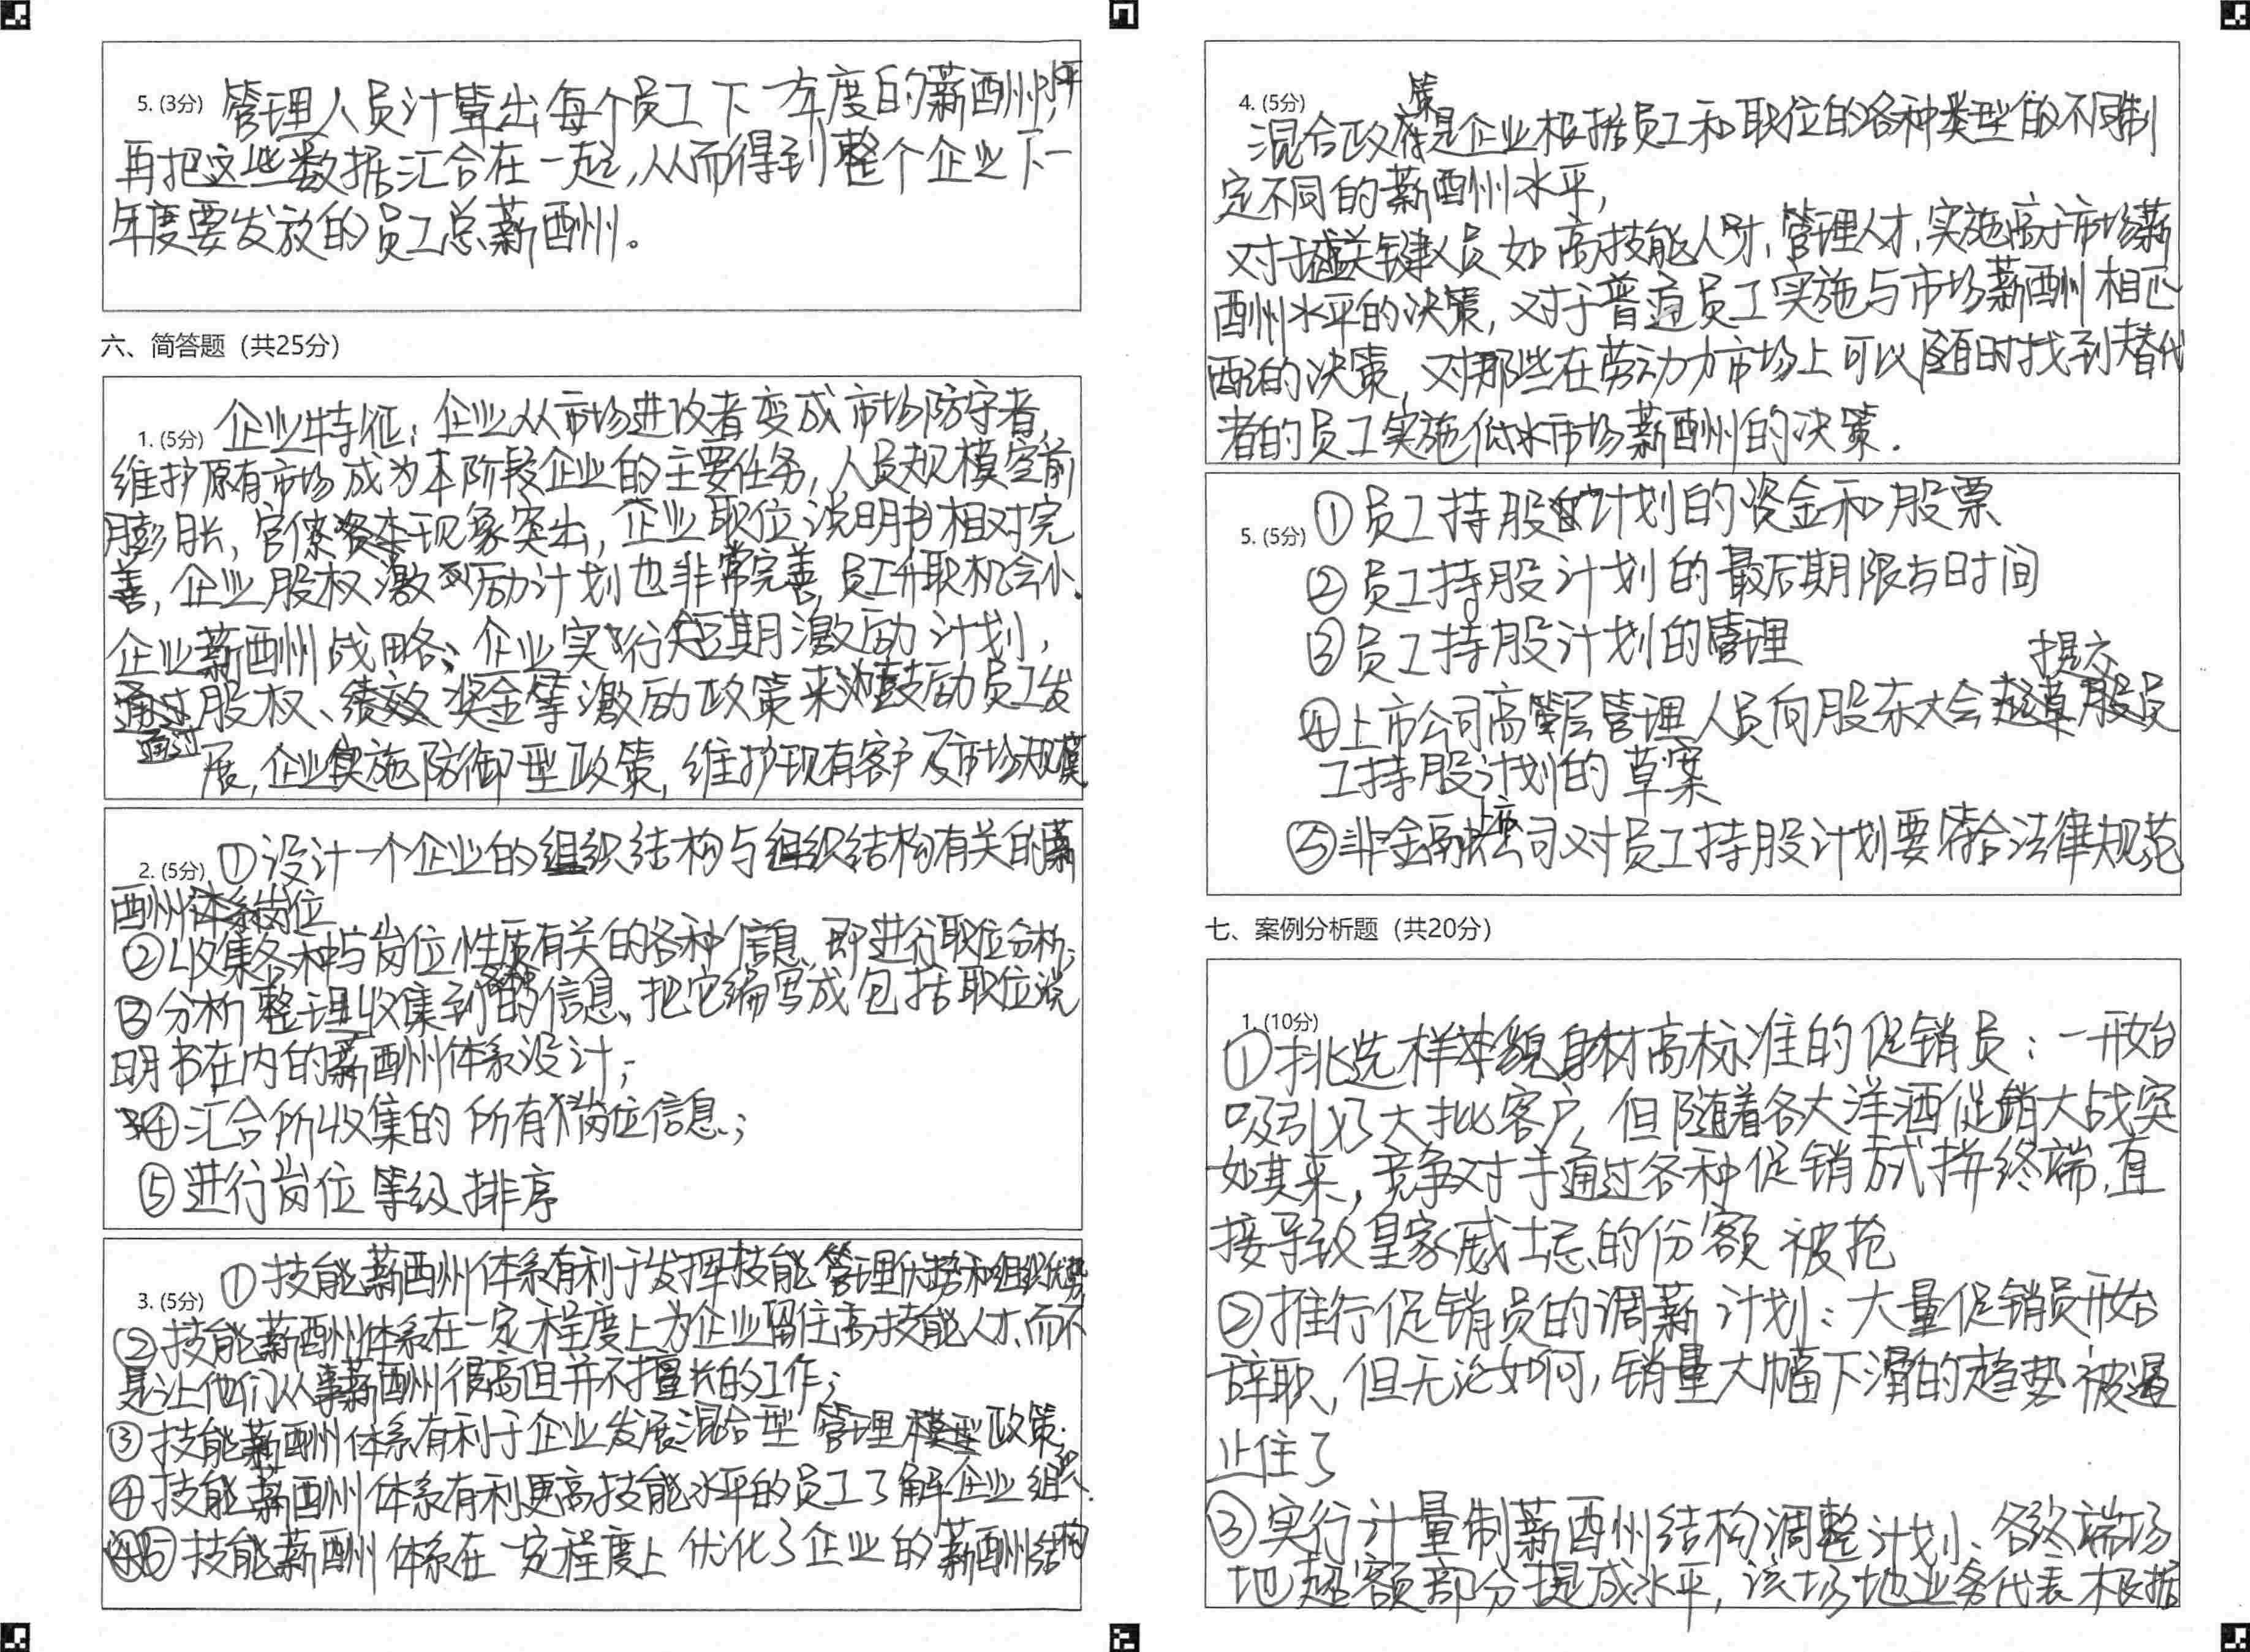 5. (3分) 管理人员计算出每个员工下一年度的薪酬水平,
再把这些数据汇合在一起,从而得到整个企业下一
年度要发放的员工总薪酬。
六、简答题 (共25分)
1. (5分) 企业特征:企业从市场进攻者变成市场防守者,
维护原有市场成为本阶段企业的主要任务,人员规模空前
膨胀,官僚资本现象突出,企业职位说明书相对完
善,企业股权激励计划也非常完善,员工升职机会小.
企业薪酬战略:企业实行短期激励计划,
通过股权、绩效奖金等激励政策来鼓励员工发
展,企业通过实施防御型政策,维护现有客户及市场规模
2. (5分) ①设计一个企业的组织结构与组织结构有关的薪
酬体系岗位
②收集各种与岗位性质有关的各种信息、即进行职位分析;
③分析整理收集到的信息、把它编写成包括职位说
明书在内的薪酬体系设计;
④汇合所收集的所有岗位信息;
⑤进行岗位等级排序
3. (5分) ①技能薪酬体系有利于发挥技能管理优势和组织优势
②技能薪酬体系在一定程度上为企业留住高技能人才、而不
是让他们从事薪酬很高但并不擅长的工作;
③技能薪酬体系有利于企业发展混合型管理模型政策;
④技能薪酬体系有利更高技能水平的员工了解企业组织.
⑤技能薪酬体系在一定程度上优化了企业的薪酬结构
4. (5分)
混合政策是企业根据员工和职位的各种类型的不同制
定不同的薪酬水平,
对于关键人员如高技能人才,管理人才,实施高于市场薪
酬水平的决策,对于普通员工实施与市场薪酬相匹
配的决策,对那些在劳动力市场上可以随时找到替代
者的员工实施低水市场薪酬的决策.
5. (5分) ①员工持股计划的资金和股票
②员工持股计划的最后期限与时间
③员工持股计划的管理
④上市公司高等层管理人员向股东大会提交员
工持股计划的草案
⑤非金融上市公司对员工持股计划要符合法律规范
七、案例分析题 (共20分)
1. (10分)
①挑选样本貌身材高标准的促销员:一开始
吸引好大批客户,但随着各大洋酒促销大战突
如其来,竞争对手通过各种促销方式拼终端,直
接导致皇家威士忌的份额被抢
②推行促销员的调薪计划:大量促销员开始
辞职,但无论如何,销量大幅下滑的趋势被遏
止住了
③实行计量制薪酬结构调整计划、各终端场
地超额部分提成水平,该场地业务代表根据